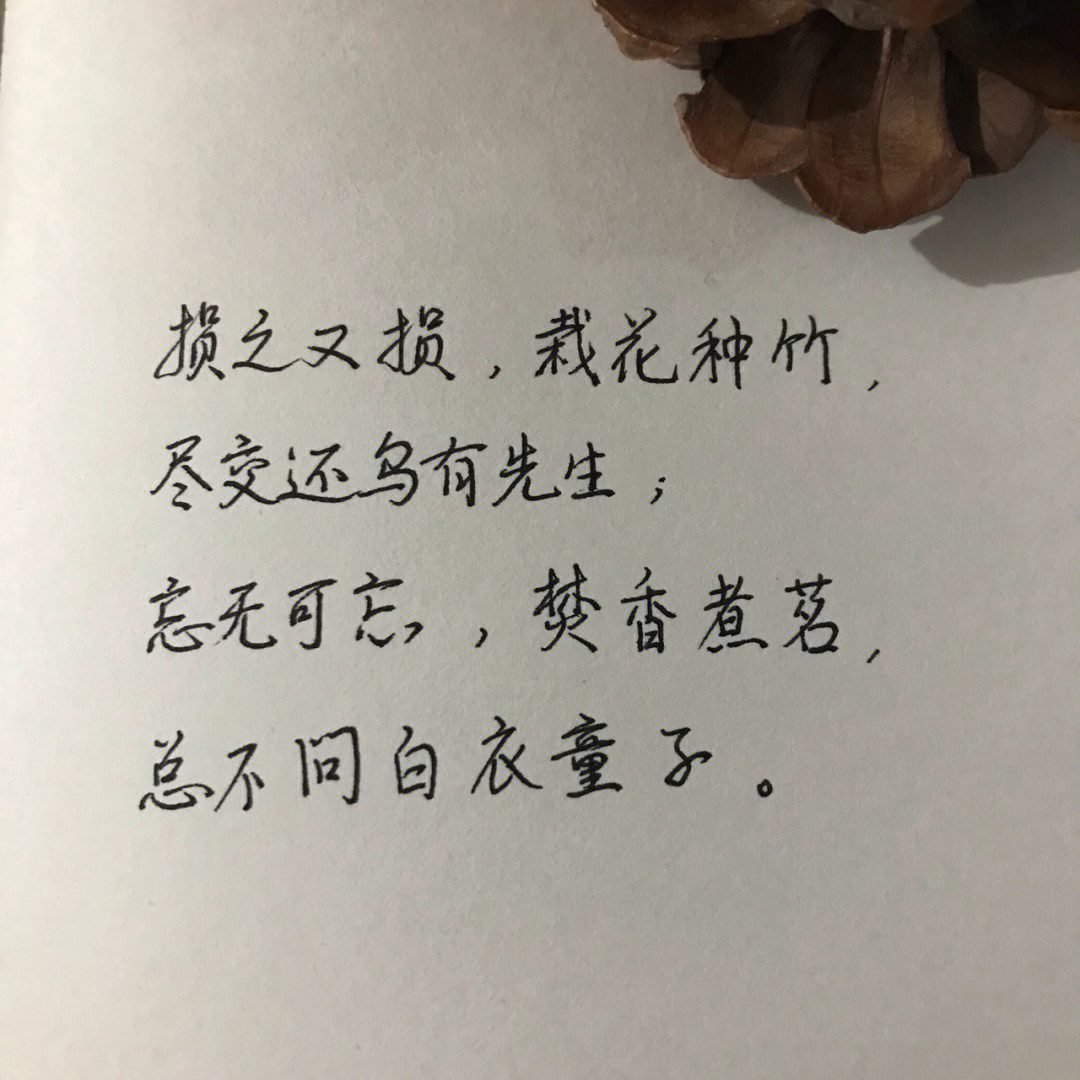 损之又损，栽花种竹，
尽交还乌有先生；
忘无可忘，焚香煮茗，
总不问白衣童子。